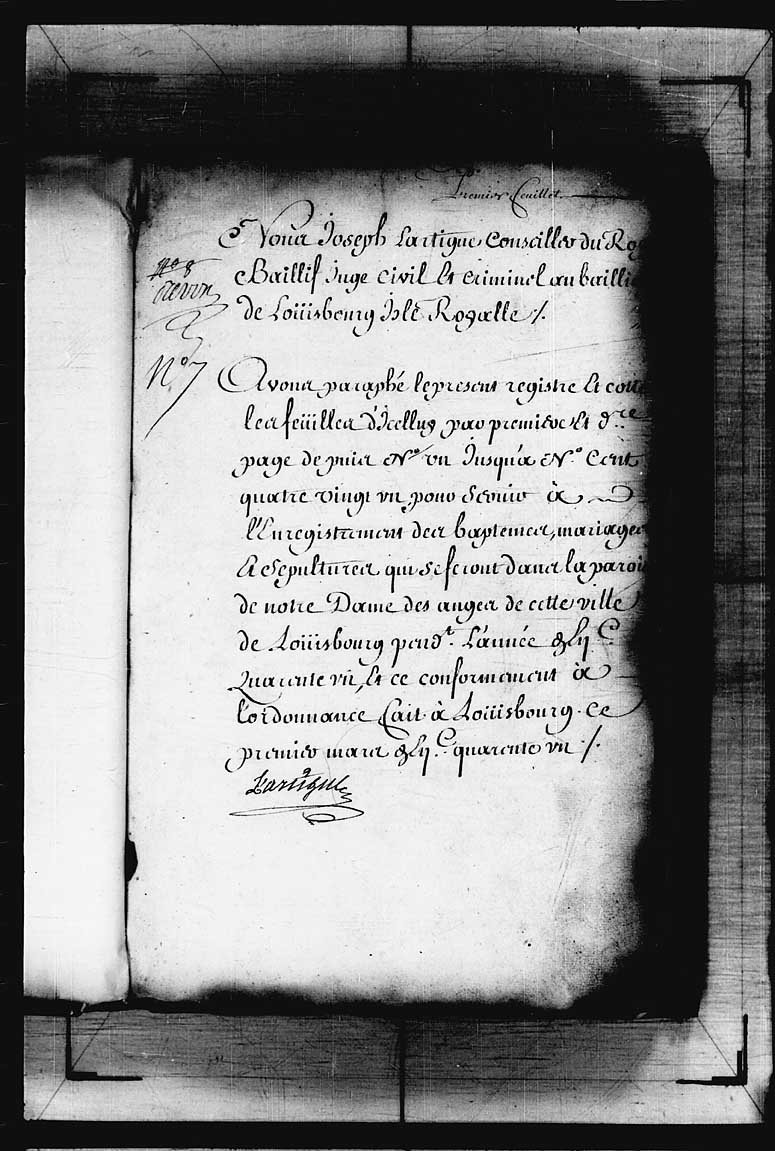 Premier feuillet
Nous Joseph Lartigue Conseiller du Roy
Baillif Juge civil Et criminel au bailli
de Loüisbourg Isle Royalle ./.
N.º 8
N.º 7
Avons paraphé le present registre Et cotté
les feüilles d'Icelluy par premiere Et d.re
page depuis N.º un Jusqu'a N.º Cent
quatre vingt un, pour servir à
l'Enregistrement des baptemes, mariages
Et sepultures qui se feront dans la paroi
de notre Dame des anges de cette ville
de Loüisbourg pend.t L'année
Quarente un, Et ce conformement à
l'ordonnance fait à Loüisbourg. Ce
premier mars quarente un ./.
Lartigue